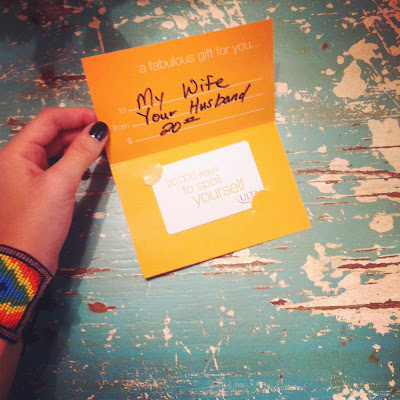 a fabulous gift for you...
to My Wife
from Your Husband
$ 20.00
20,000 ways
to spoil
yourself
ULTA